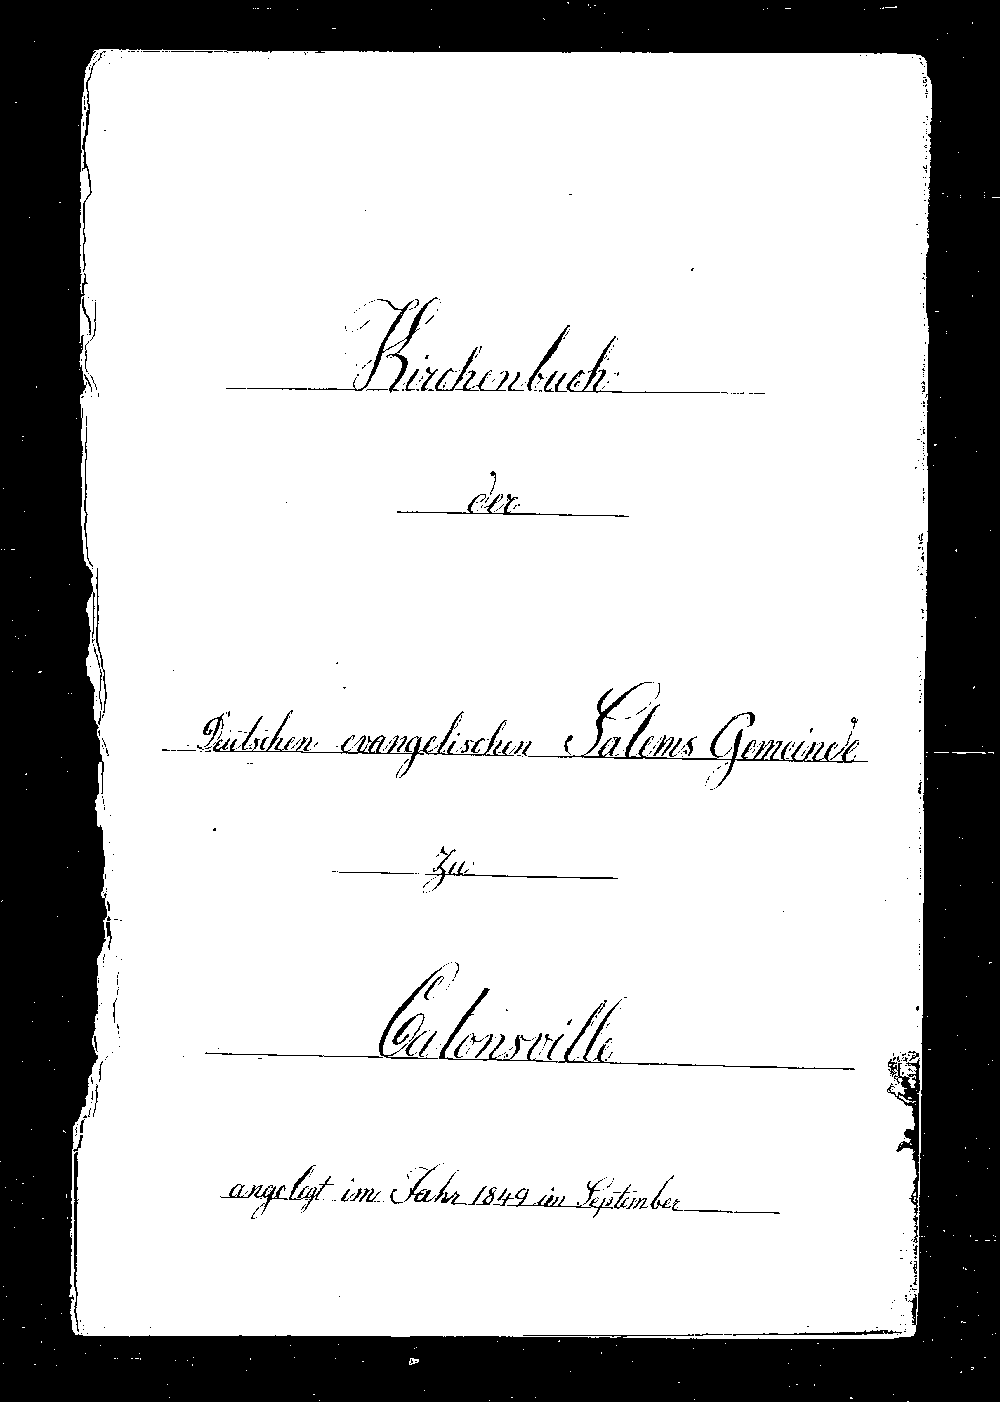 Kirchenbuch
der
Deutschen evangelischen Salems Gemeinde
zu
Catonsville
angelegt im Jahr 1849 im September